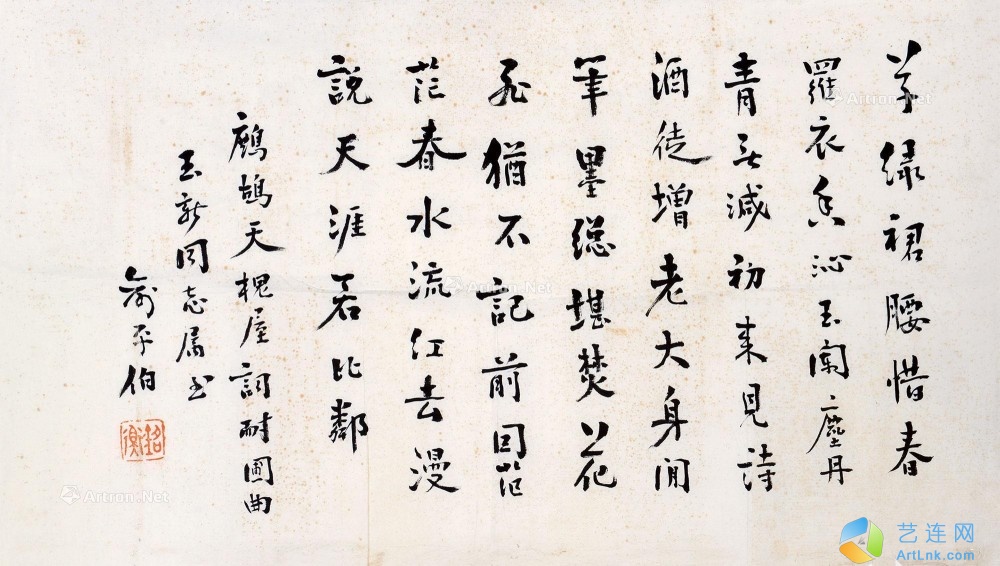 草绿裙腰惜春
羅衣香沁玉闌塵丹
青無減初来見詩
酒徒增老大身閒
筆墨總堪焚花
飛猶不記前囙茫
茫春水流红去漫
説天涯若比鄰
鷓鴣天 槐屋詞耐圃曲
玉新同志属书
俞平伯
銘衡
Artron.Net
Artron.Net
Artron.Net
Artron.Net
艺连网
ArtLnk.com